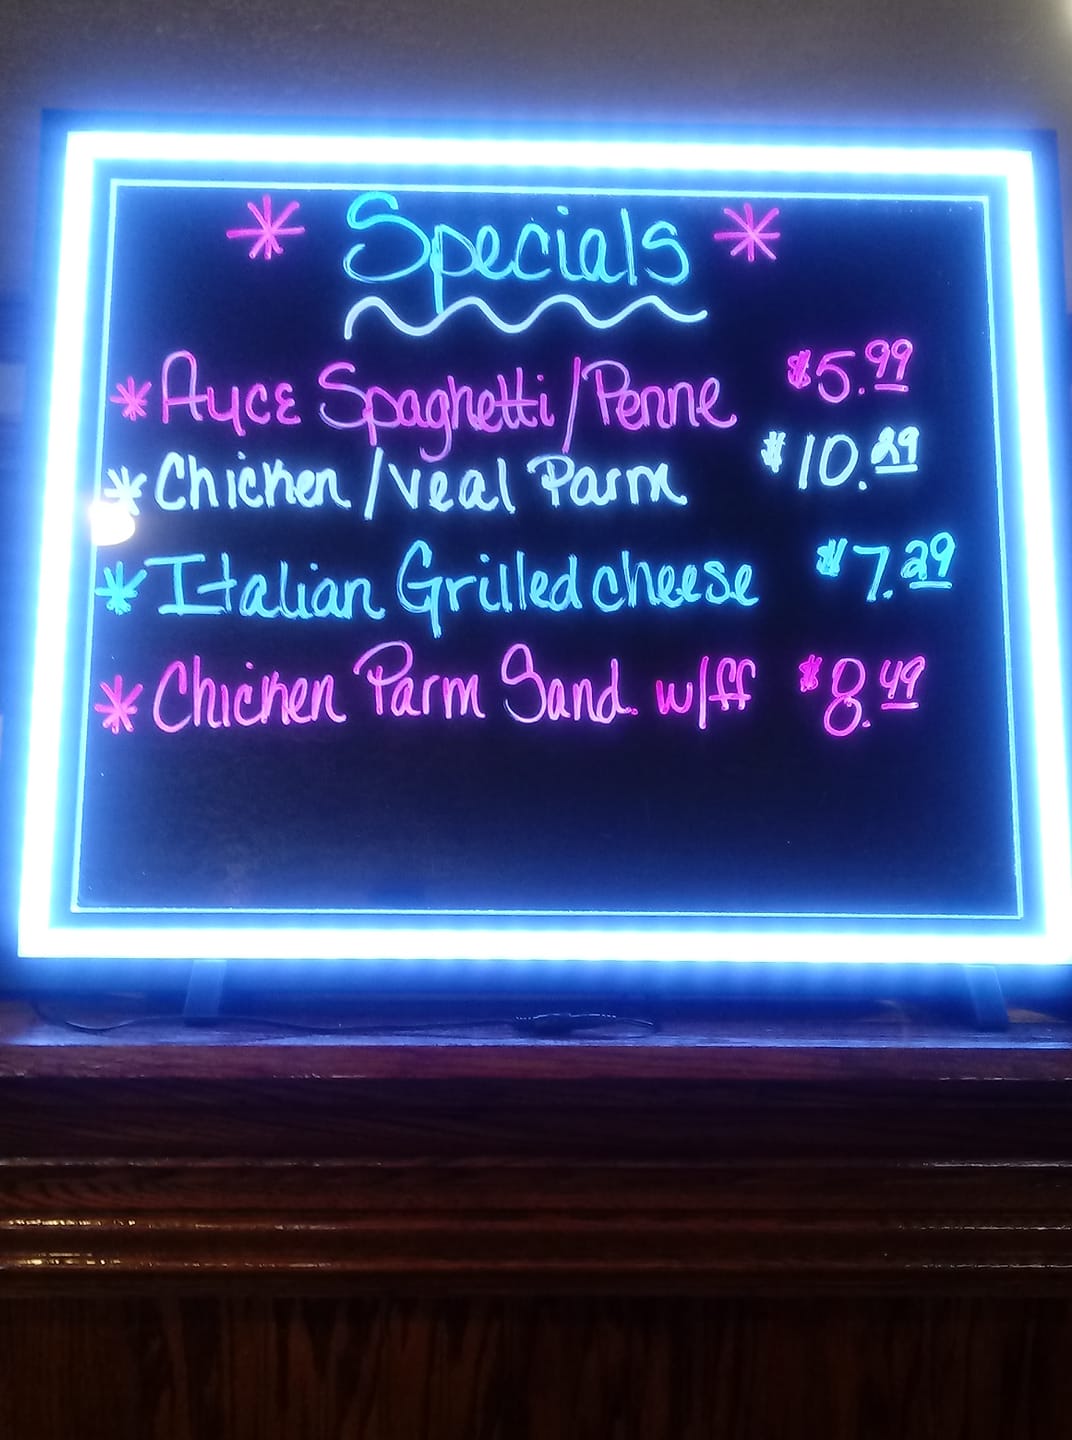 * Specials *
* Ayce Spaghetti/Penne $5.99
* Chicken/Veal Parm $10.29
* Italian Grilled cheese $7.29
* Chicken Parm Sand. w/ff $8.49